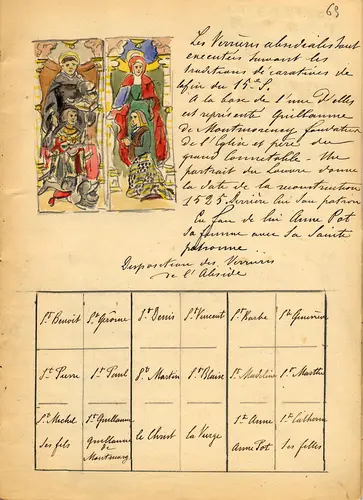 69
Les Verrières absidiales sont
executées suivant les
traditions décoratives de
la fin du 15e S.
A la base de l'une d'elles
est représenté Guillaume
de Montmorency fondateur
de l'Eglise et père du
grand Connetable. Un
portrait du Louvre donne
la date de la reconstruction
1525. Derrière lui son patron
En face de lui Anne Pot
sa femme avec sa Sainte
patronne
Disposition des Verrières
de l'Abside
St Benoit St Gérome St Denis St Vincent Ste Barbe Ste Geneviève
St Pierre St Paul St Martin St Blaise Ste Madeleine Ste Marthe
St Michel St Guillaume Ste Anne Ste Catherine
ses fils Guillaume le Christ la Vierge Anne Pot ses filles
de Montmorency